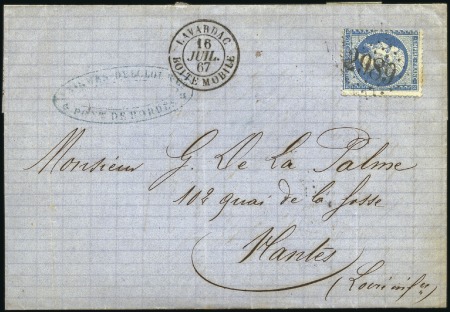 LAVARDAC
16
JUIL.
67
BOITE MOBILE
PORT DE BORDES
Monsieur G. De La Palme
102 quai de la fosse
Nantes
(Loire infre)